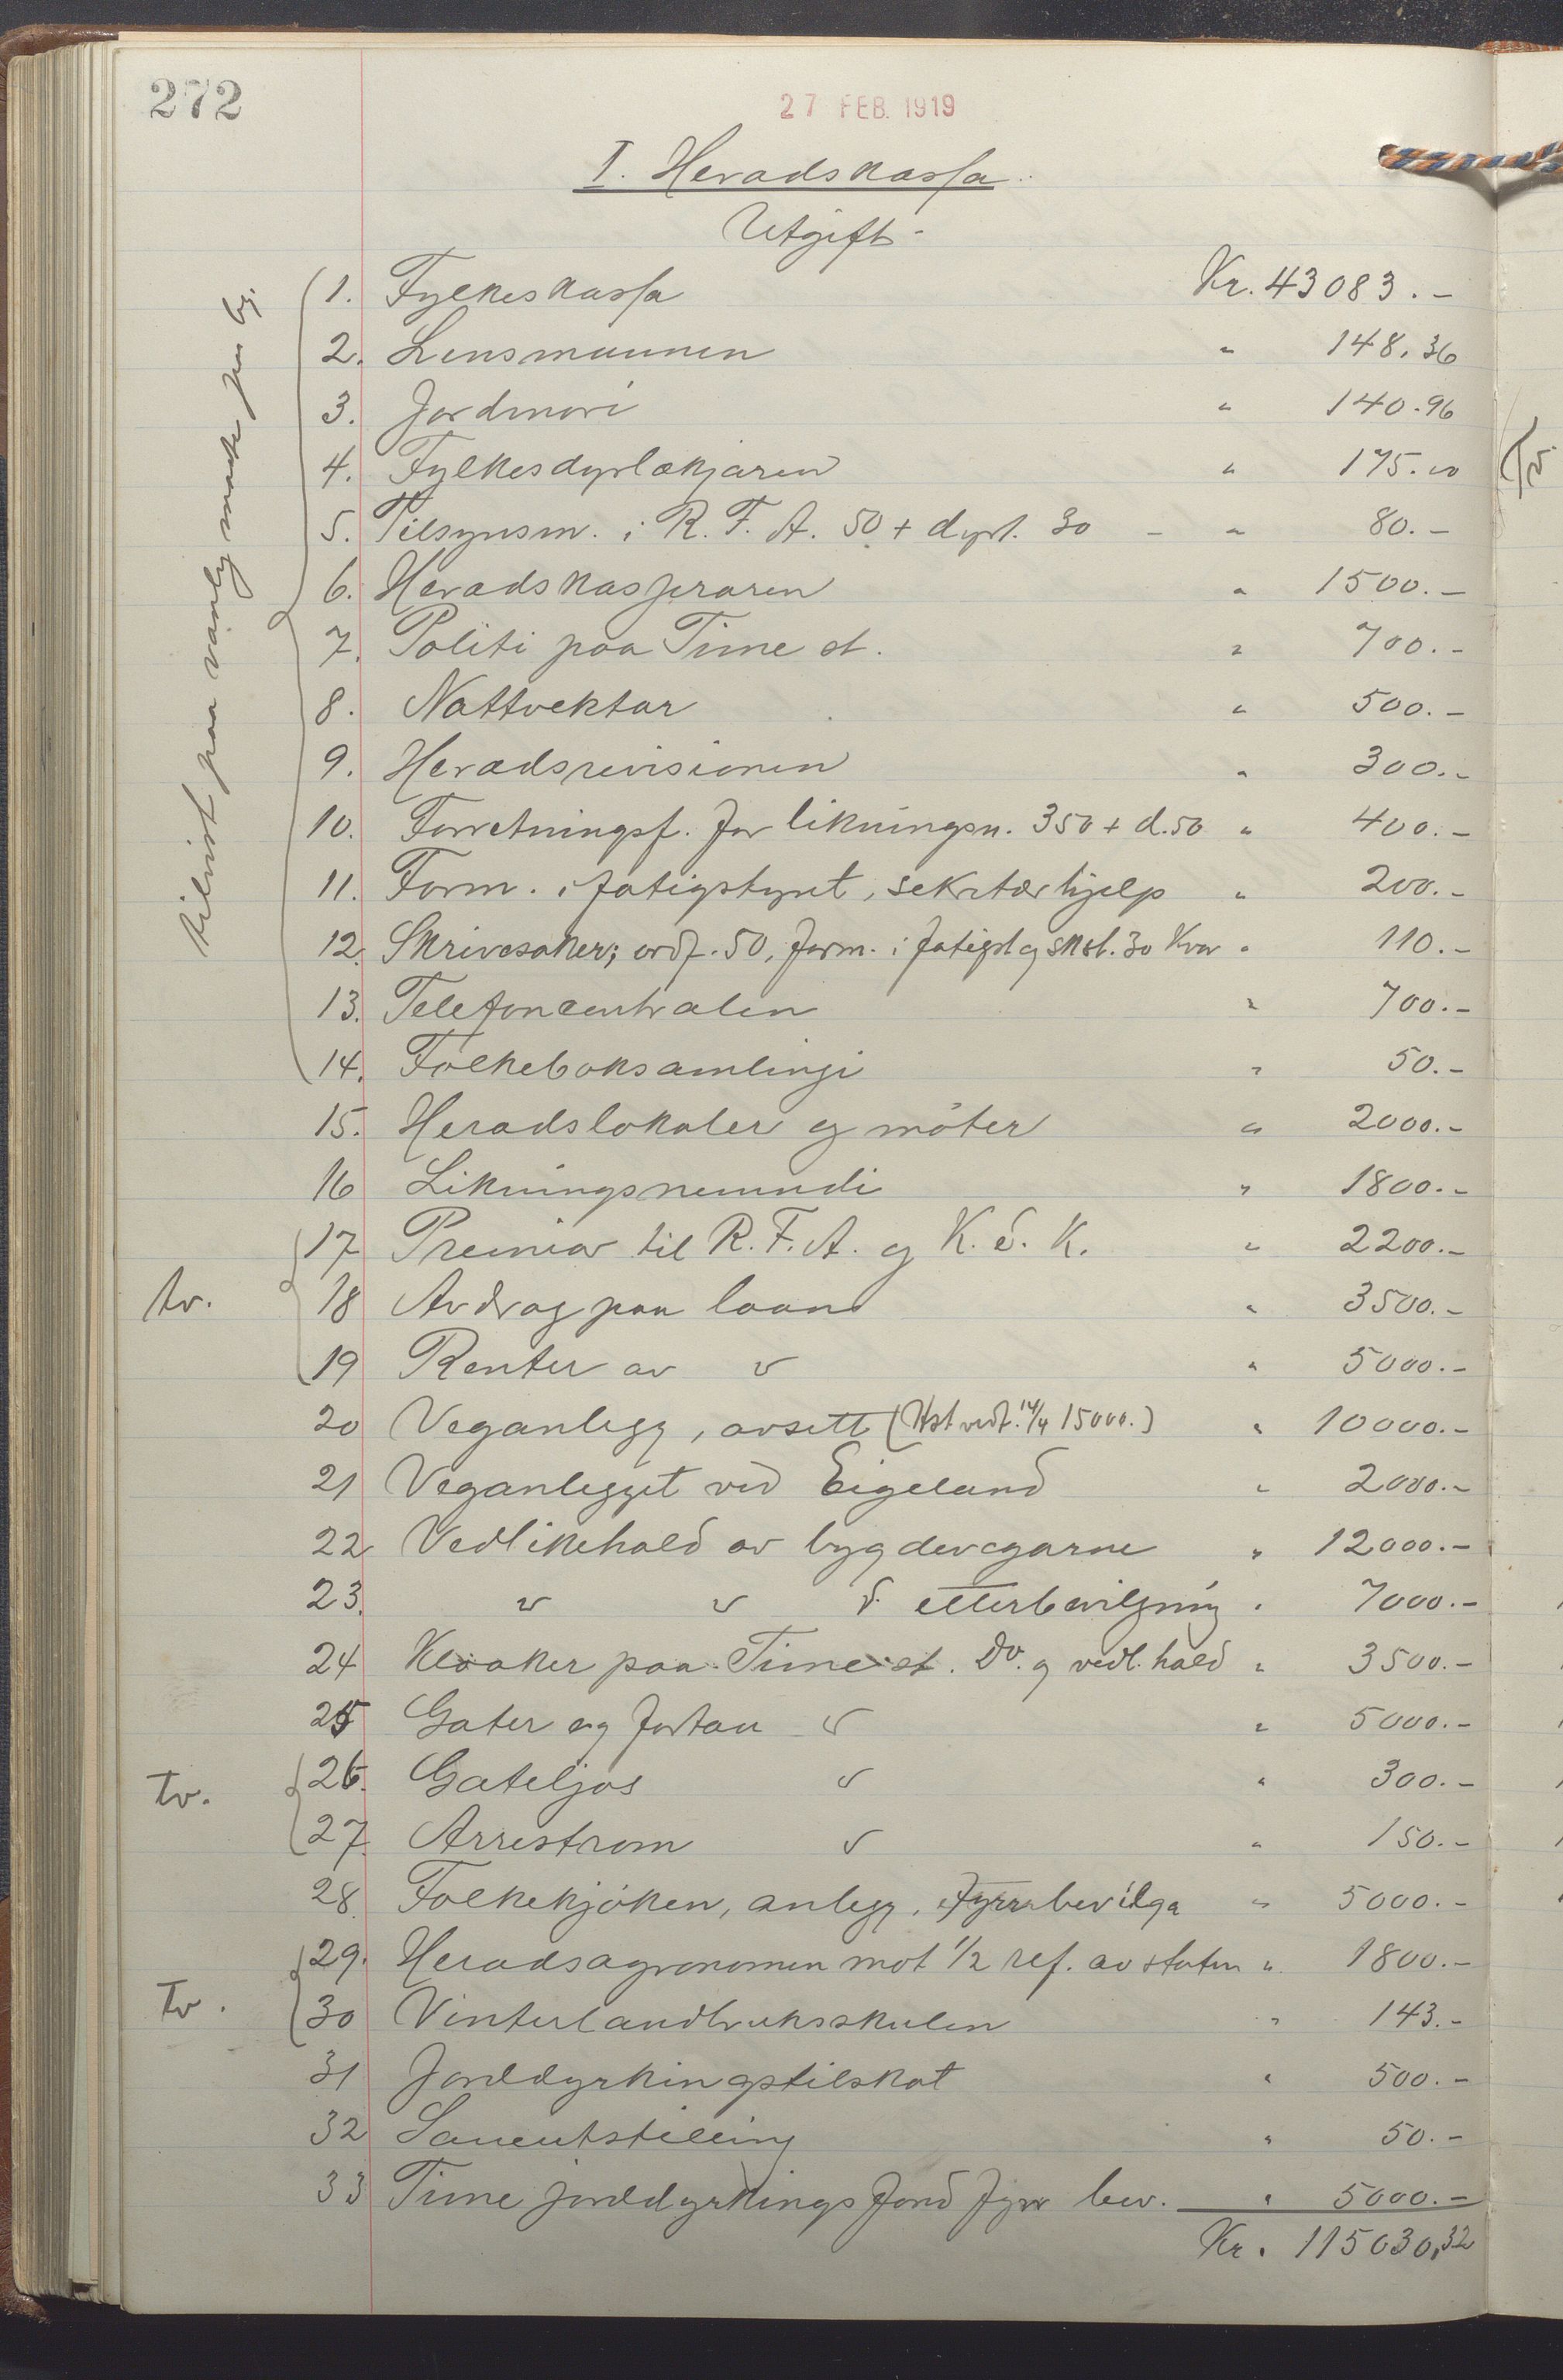 272
27 FEB. 1919
I. Heradskassa.
Utgift.
tilvist paa vanleg maate
1. Fylkeskassa Kr. 43083.-
2. Lensmannen " 148.36
3. Jordmori " 140.96
4. Fylkesdyrlækjaren " 175.00
5. Tilsynsm. i R. F. A. 50 + dyrt. 30 - " 80.-
6. Heradskasseraren " 1500.-
7. Politi paa Time st. " 700.-
8. Nattvektar " 500.-
9. Heradsrevisionen " 300.-
10. Forretningsf. for likningsn. 350 + d. 50 " 400.-
11. Form. i fatigstyret, sekretærhjelp " 200.-
12. Skrivesaker; ordf. 50, form. i fatigst og skst. 30 kvar " 110.-
13. Telefoncentralen " 700.-
14. Folkeboksamlingi " 50.-
15. Heradslokaler og möter " 2000.-
16 Likningsnemndi " 1800.-
17 Premiar til R. F. A. og K. E. K. " 2200.-
tv. 18 Avdrag paa laan " 3500.-
19 Renter av " " 5000.-
20 Veganlegg, avsett (Hst vedt. 14/4 15000.) " 10000.-
21 Veganlegget ved Eigeland " 2000.-
22 Vedlikehald av bygdevegarne " 12000.-
23. " " " etterbevilgning " 7000.-
24 Kloaker paa Time st. Do. og vedl. hald " 3500.-
25 Gater og fortau " " 5000.-
tv. 26. Gateljos " " 300.-
27. Arrestrom " " 150.-
28. Folkekjöken, anlegg, fyrr bevilga " 5000.-
29. Heradsagronomen mot 1/2 ref. av staten " 1800.-
tv. 30 Vinterlandbruksskulen " 143.-
31 Jorddyrkingstilskot " 500.-
32 Saueutstilling " 50.-
33 Time jorddyrkingsfond fyrr bev. " 5000.-
Kr. 115030,32
tv.